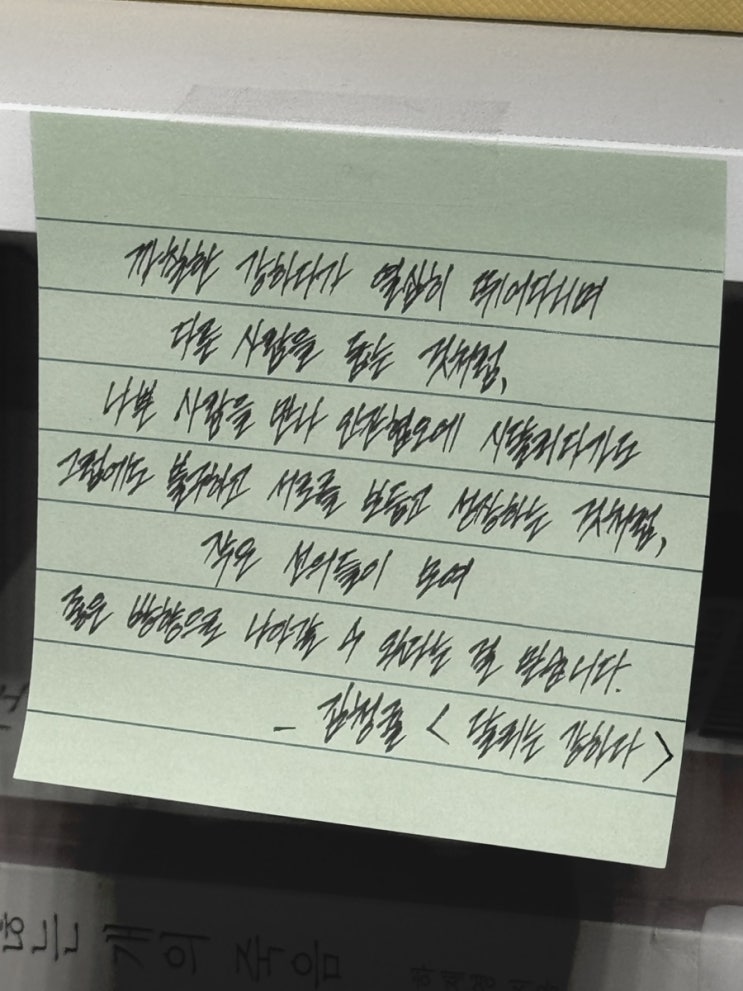 까칠한 강하다가 열심히 뛰어다니며
다른 사람을 돕는 것처럼,
나쁜 사람을 만나 인간혐오에 시달리다가도
그럼에도 불구하고 서로를 보듬고 성장하는 것처럼,
작은 선의들이 모여
좋은 방향으로 나아갈 수 있다는 걸 믿습니다.
- 김청귤 < 달리는 강하다 >
개의 죽음